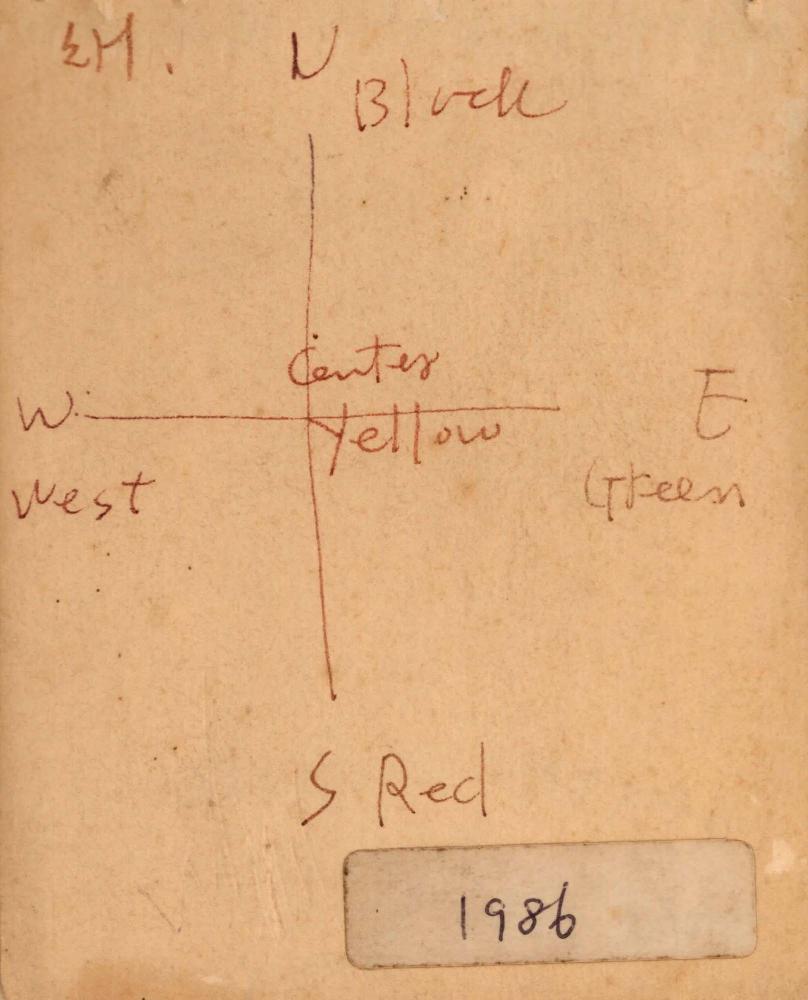 N
Black
Center
W
Yellow
E
West
Green
S Red
1986